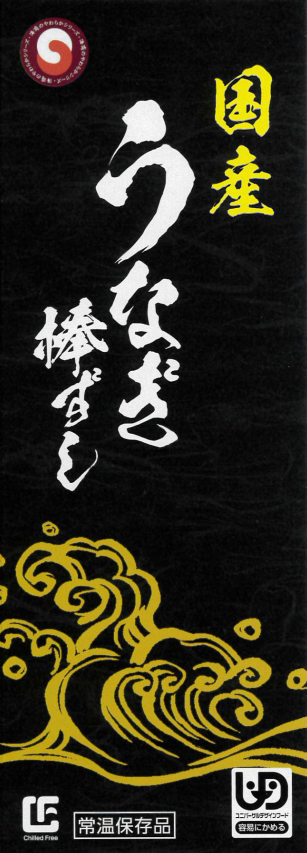 国産
うなぎ
棒ずし
Chilled Free
常温保存品
ユニバーサルデザインフード
容易にかめる